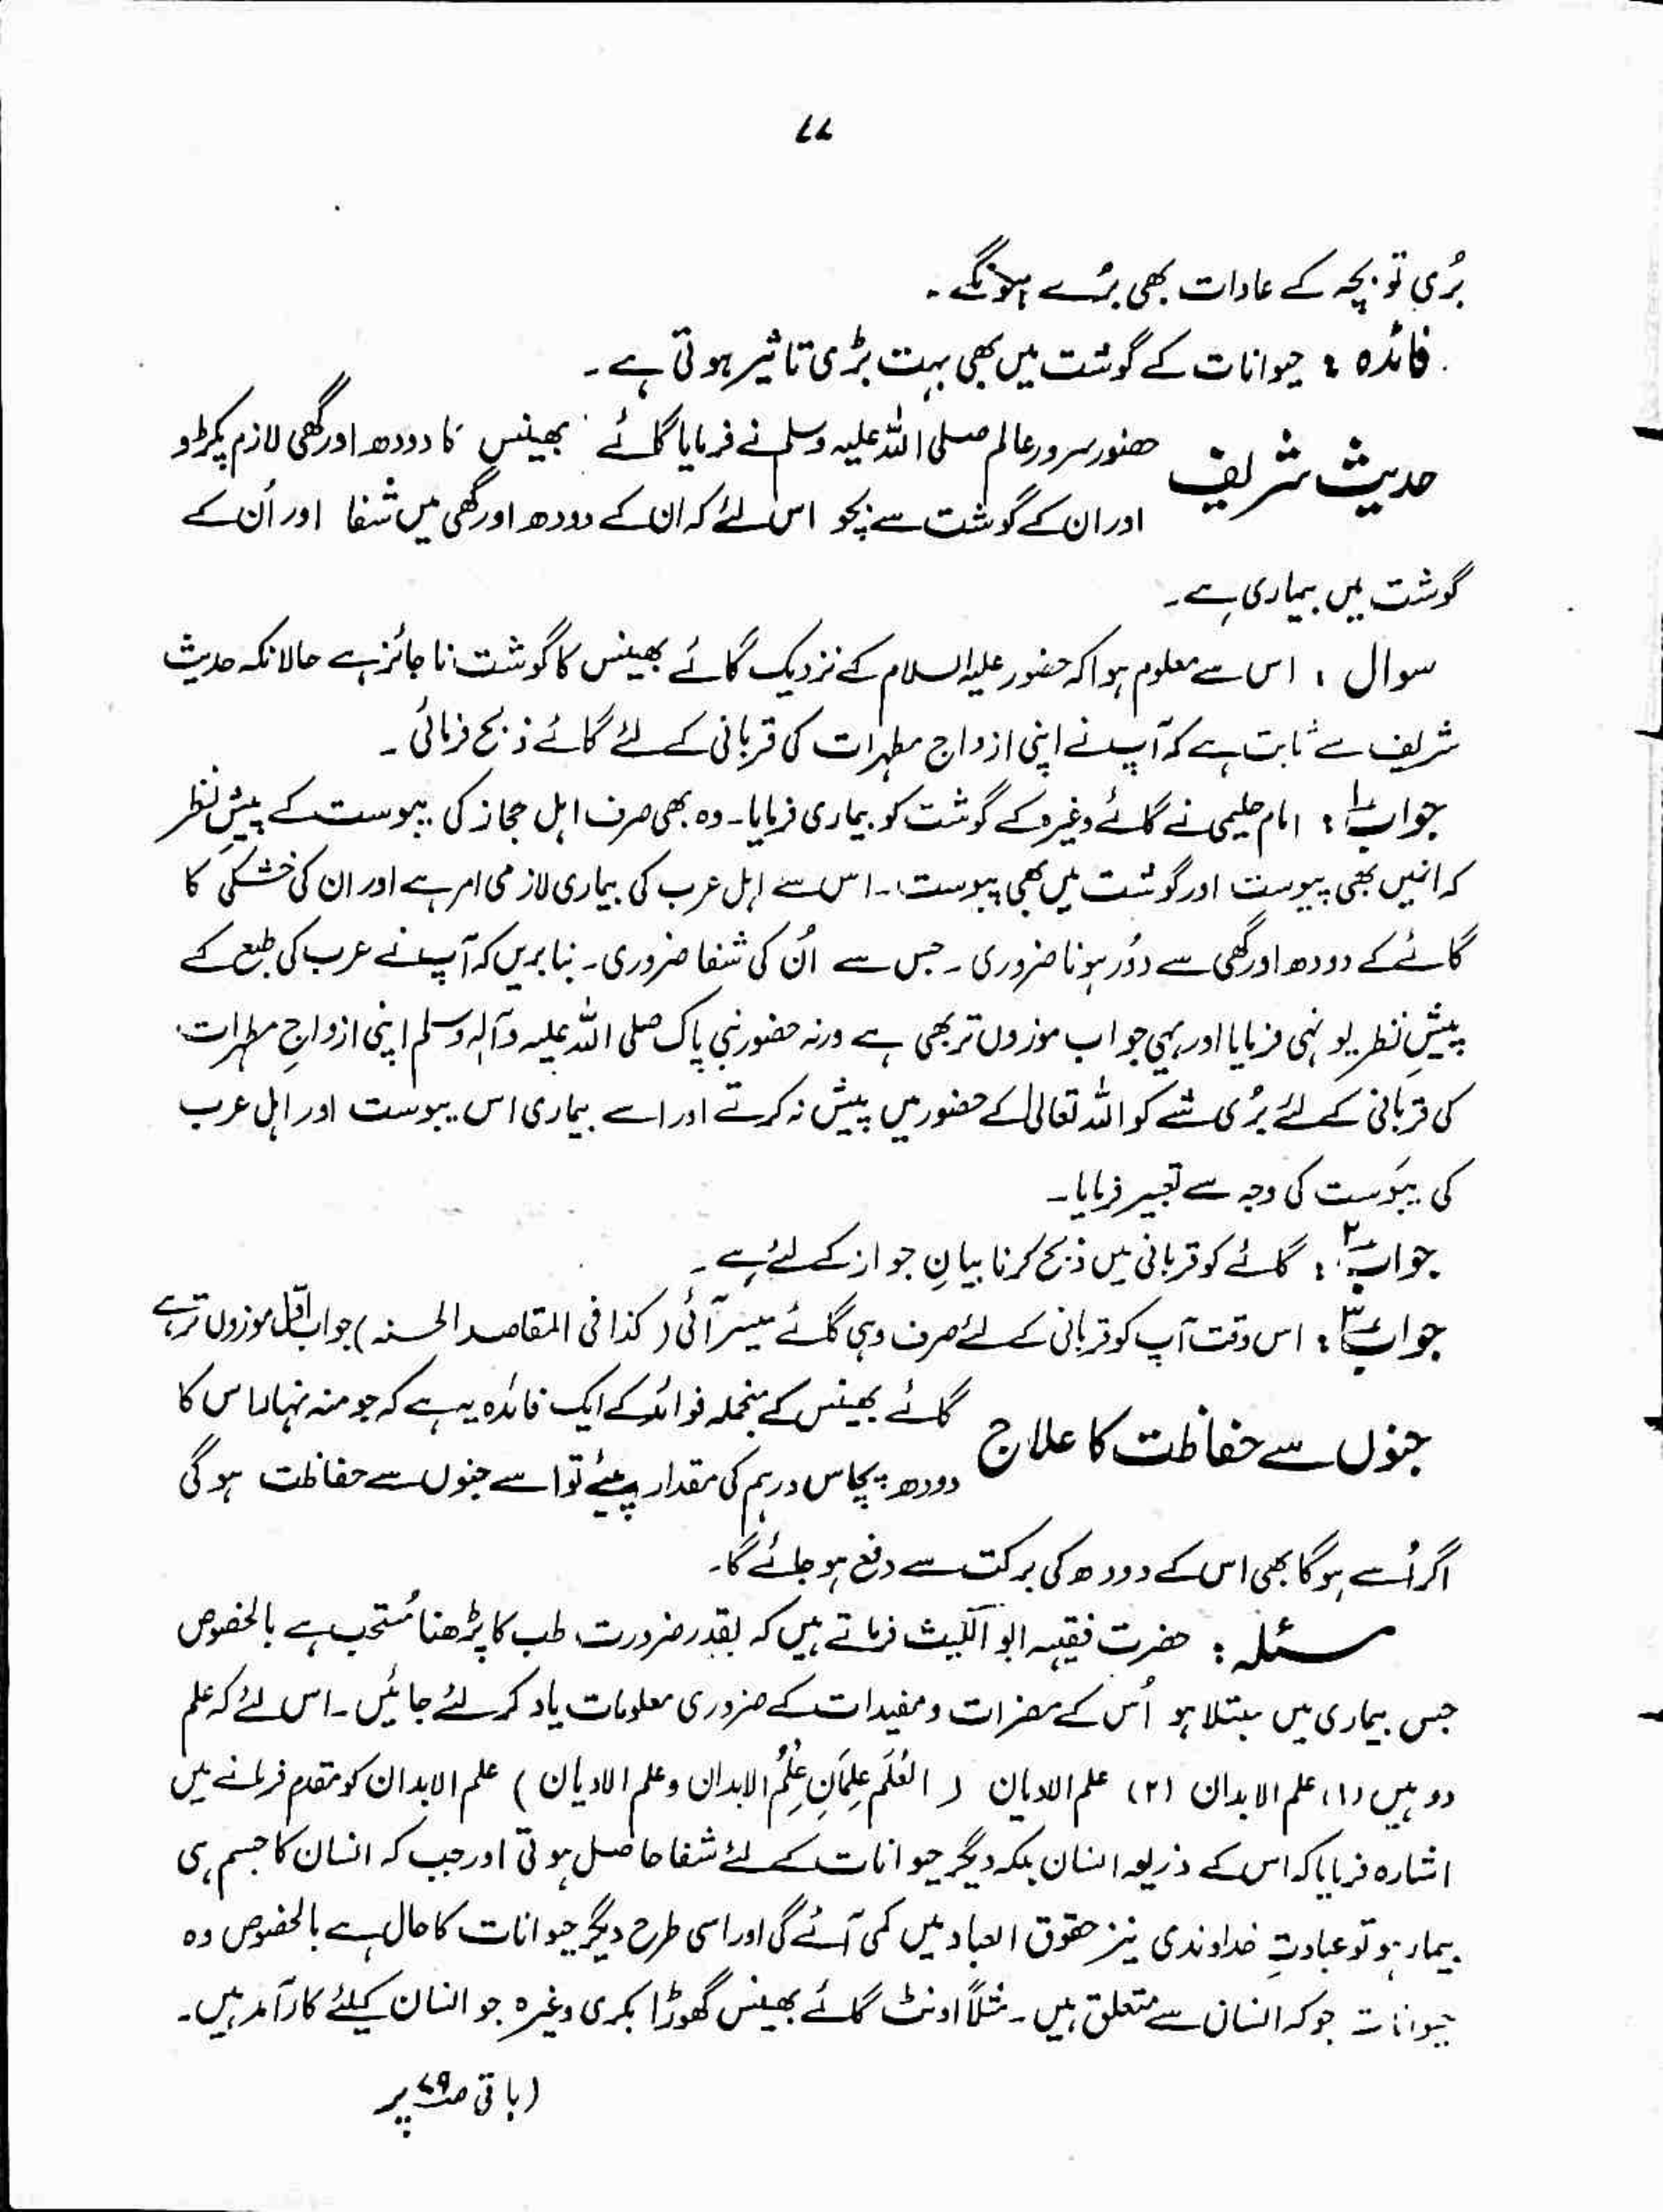 ۷۷
بُری تو بچہ کے عادات بھی بُرے ہونگے۔
فائدہ : حیوانات کے گوشت میں بھی بہت بڑی تاثیر ہوتی ہے۔
حدیث شریف
حضور سرور عالم صلی اللہ علیہ وسلم نے فرمایا گائے بھینس کا دودھ اور گھی لازم پکڑو
اور ان کے گوشت سے بچو اس لئے کہ ان کے دودھ اور گھی میں شفا اور اُن کے
گوشت میں بیماری ہے۔
سوال : اس سے معلوم ہوا کہ حضور علیہ السلام کے نزدیک گائے بھینس کا گوشت ناجائز ہے حالانکہ حدیث
شریف سے ثابت ہے کہ آپ نے اپنی ازواج مطہرات کی قربانی کے لئے گائے ذبح فرمائی۔
جواب ۱ : امام حلیمی نے گائے وغیرہ کے گوشت کو بیماری فرمایا۔ وہ بھی صرف اہل حجاز کی یبوست کے پیشِ نظر
کہ انہیں بھی یبوست اور گوشت میں بھی یبوست۔ اس سے اہل عرب کی بیماری لازمی امر ہے اور ان کی خشکی کا
گائے کے دودھ اور گھی سے دُور ہونا ضروری۔ جس سے اُن کی شفا ضروری۔ بنا بریں کہ آپ نے عرب کی طبع کے
پیشِ نظر یونہی فرمایا اور یہی جواب موزوں تر بھی ہے ورنہ حضور نبی پاک صلی اللہ علیہ وآلہ وسلم اپنی ازواجِ مطہرات
کی قربانی کے لئے بُری شے کو اللہ تعالیٰ کے حضور میں پیش نہ کرتے اور اسے بیماری اس یبوست اور اہل عرب
کی یبوست کی وجہ سے تعبیر فرمایا۔
جواب ۲ : گائے کو قربانی میں ذبح کرنا بیانِ جواز کے لئے ہے۔
جواب ۳ : اس وقت آپ کو قربانی کے لئے صرف وہی گائے میسر آئی (کذا فی المقاصد الحسنہ) جواب اوّل موزوں تر ہے
جنوں سے حفاظت کا علاج
گائے بھینس کے منجملہ فوائد کے ایک فائدہ یہ ہے کہ جو منہ نہار اس کا
دودھ پچاس درہم کی مقدار پیئے تو اسے جنوں سے حفاظت ہوگی
اگر اُسے ہوگا بھی اس کے دودھ کی برکت سے دفع ہو جائے گا۔
مسئلہ : حضرت فقیہہ ابو اللیث فرماتے ہیں کہ بقدر ضرورت طب کا پڑھنا مُستحب ہے بالخصوص
جس بیماری میں مبتلا ہو اُس کے مضرات و مفیدات کے ضروری معلومات یاد کر لئے جائیں۔ اس لئے کہ علم
دو ہیں (۱) علم الابدان (۲) علم الادیان (العُلَم عِلمَانِ عِلمُ الابدان وعلم الادیان) علم الابدان کو مقدم فرمانے میں
اشارہ فرمایا کہ اس کے ذریعہ انسان بلکہ دیگر حیوانات کے لئے شفا حاصل ہوتی اور جب کہ انسان کا جسم ہی
بیمار ہو تو عبادتِ خداوندی نیز حقوق العباد میں کمی آئے گی اور اسی طرح دیگر حیوانات کا حال ہے بالخصوص وہ
حیوانات جو کہ انسان سے متعلق ہیں۔ مثلاً اونٹ گائے بھینس گھوڑا بکری وغیرہ جو انسان کیلئے کارآمد ہیں۔
(باقی صـ ۷۹ پر